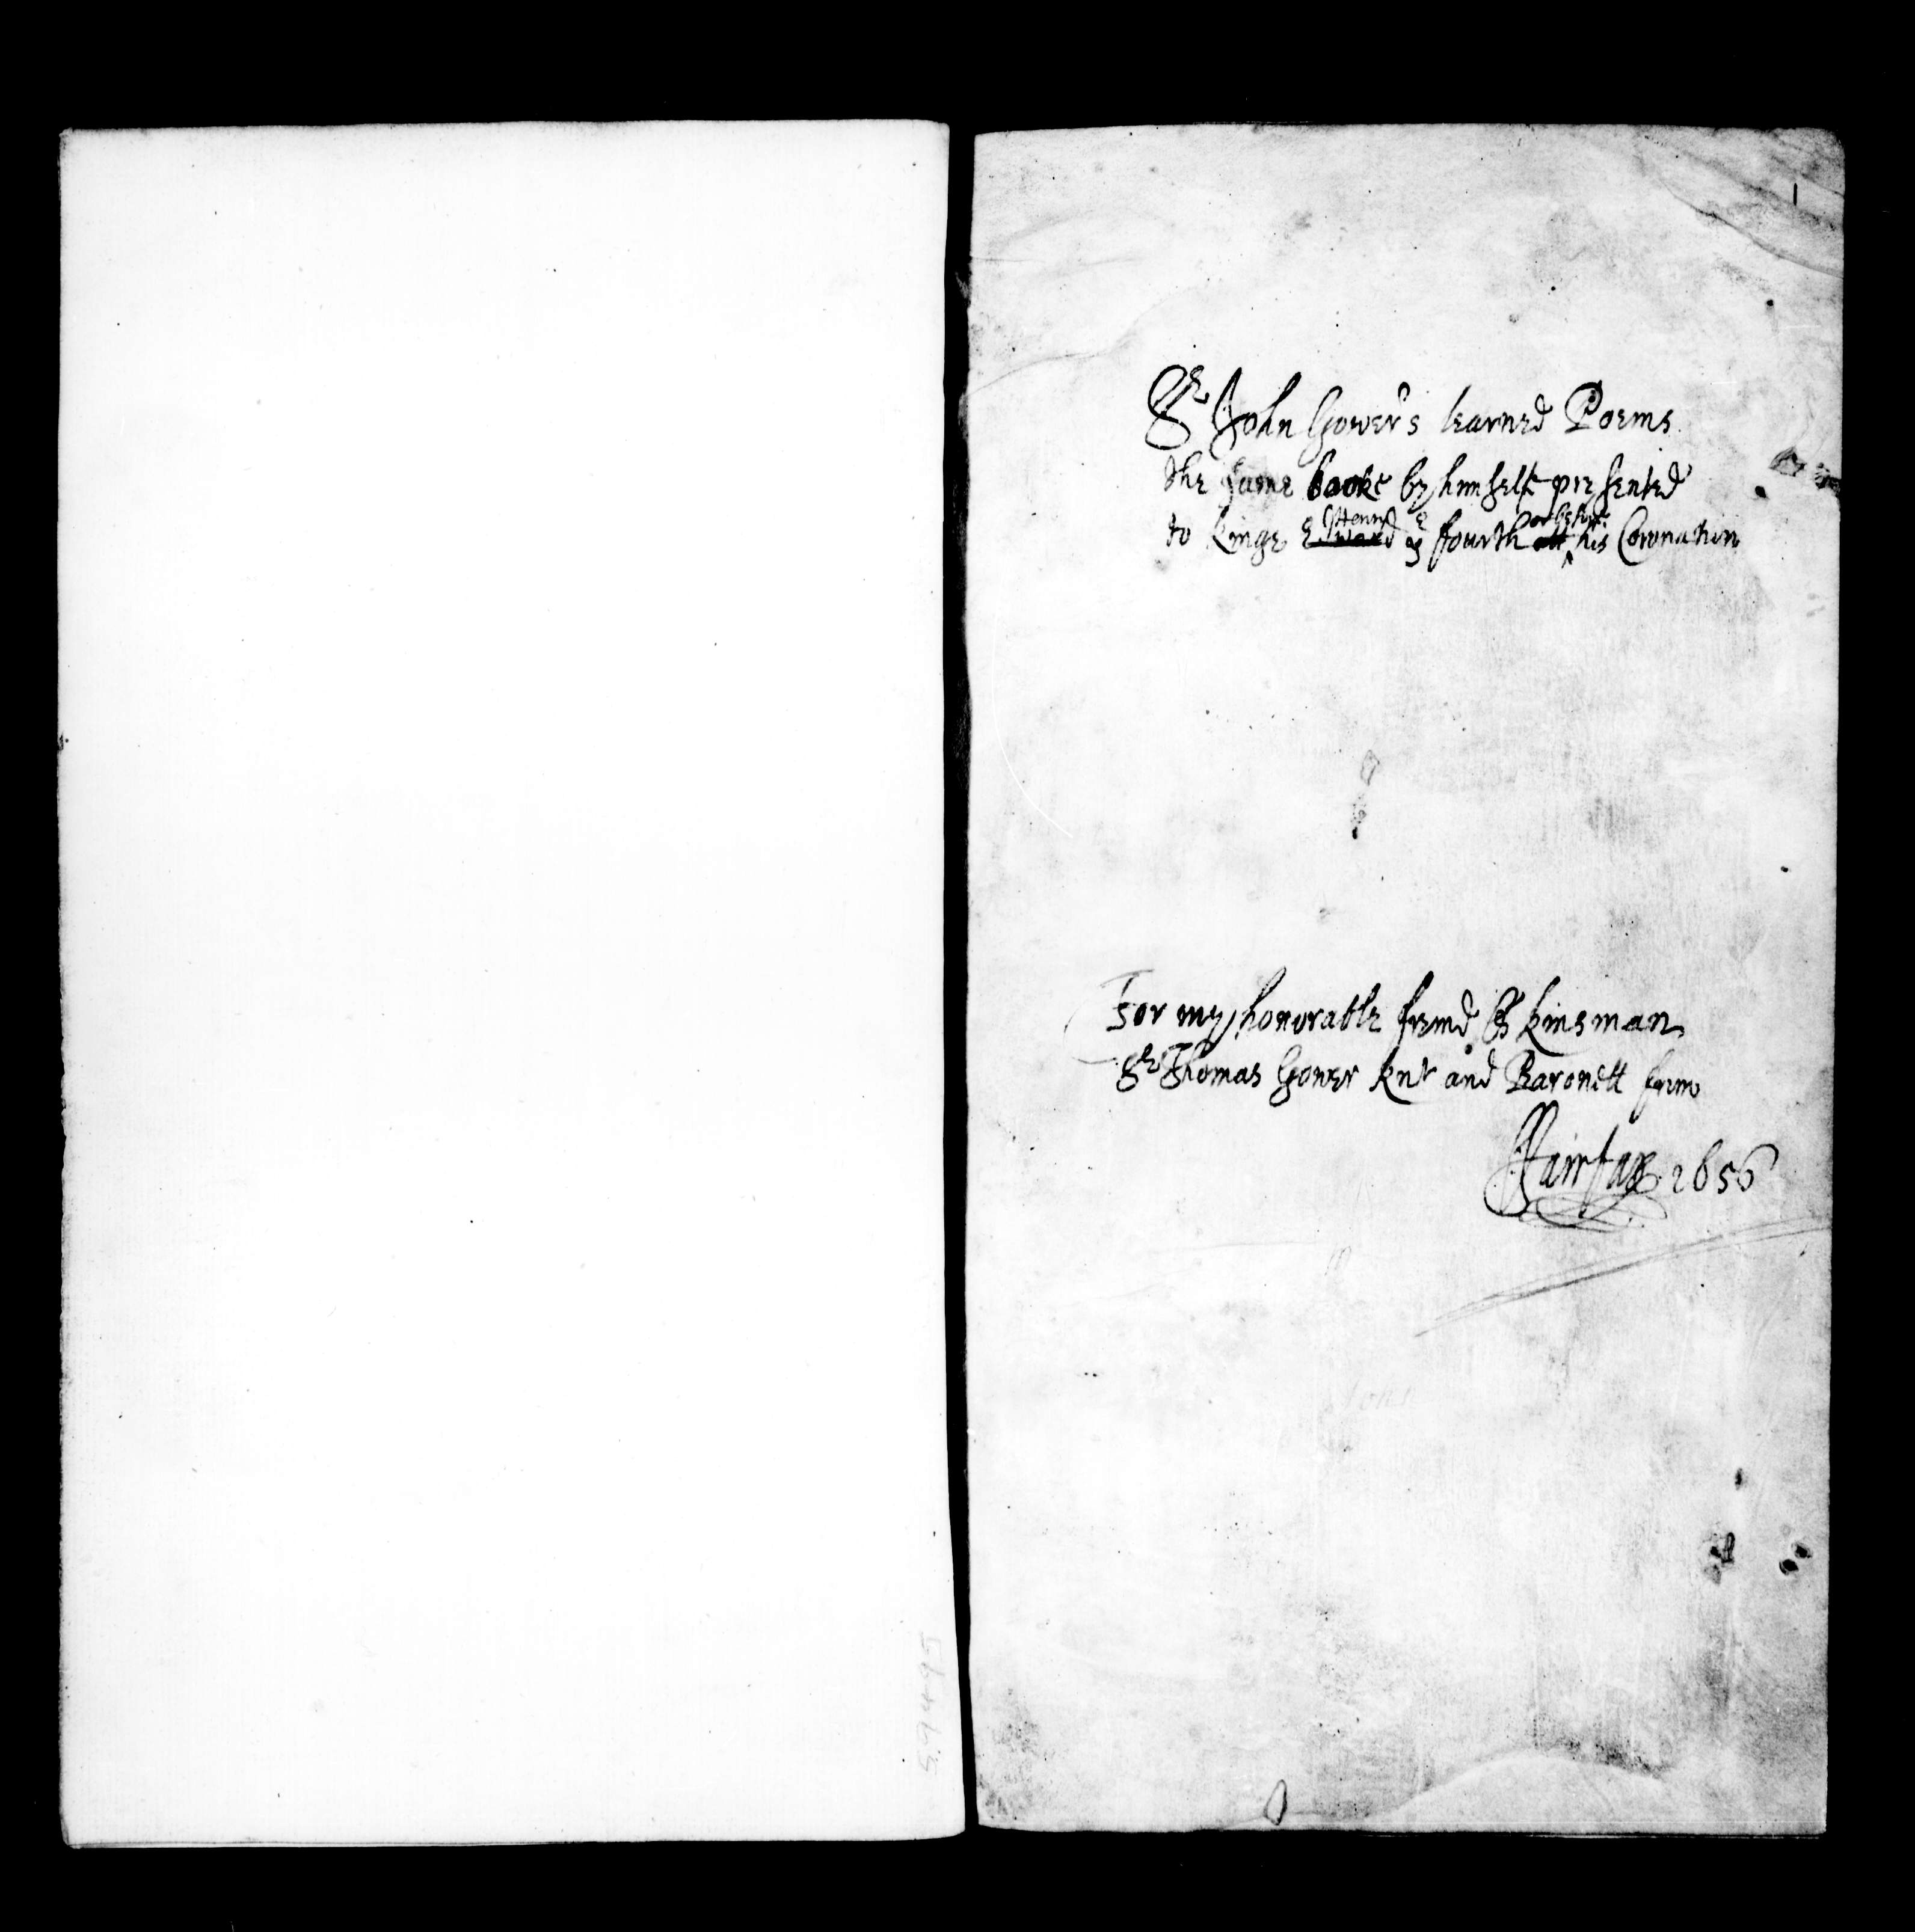 1
Sr. John Gower's learned Poems
the same booke by himself presented
Henry or before
to kinge Edward ye fourth att his Coronation
For my honorable freind & kinsman
Sr. Thomas Gower knt and Baronett from
Fairfax 1656
59495